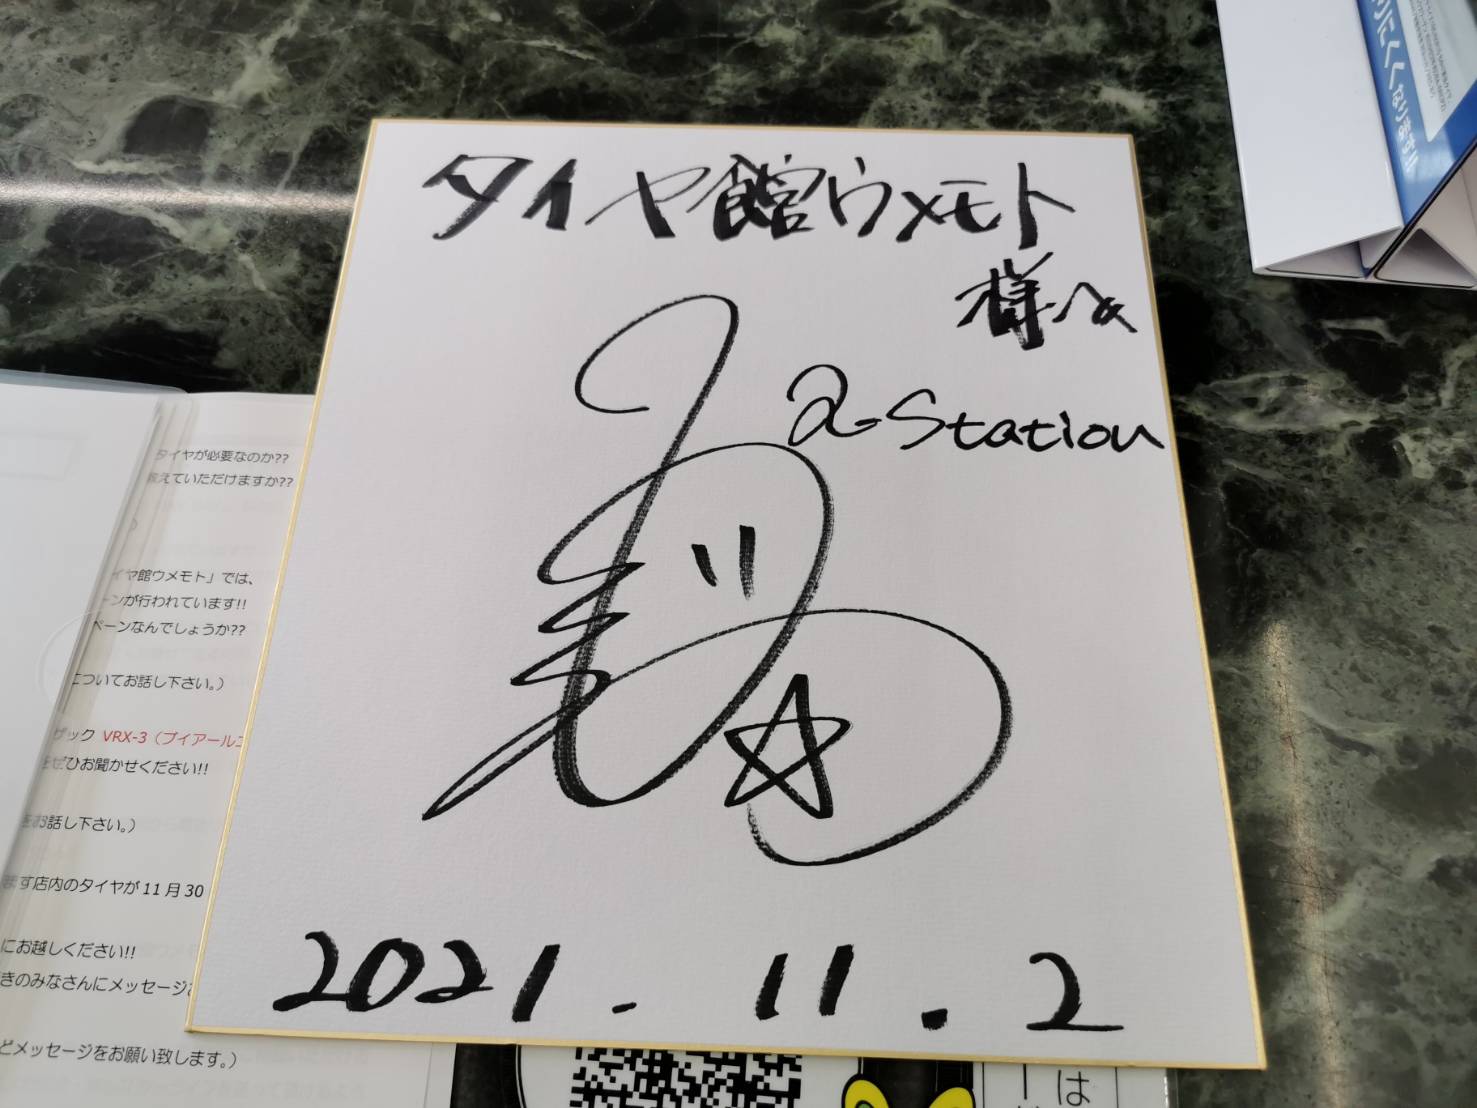 タイヤ館ウメモト
様へ
α-Station
2021.11.2
タイヤが必要なのか??
教えていただけますか??
イヤ館ウメモト」では、
ーンが行われています!!
ペーンなんでしょうか??
についてお話し下さい。)
ザック VRX-3(ブイアールエ
ぜひお聞かせください!!
をお話し下さい。)
ます店内のタイヤが11月30
にお越しください!!
きのみなさんにメッセージ
どメッセージをお願い致します。)
りにくくなります!!
は